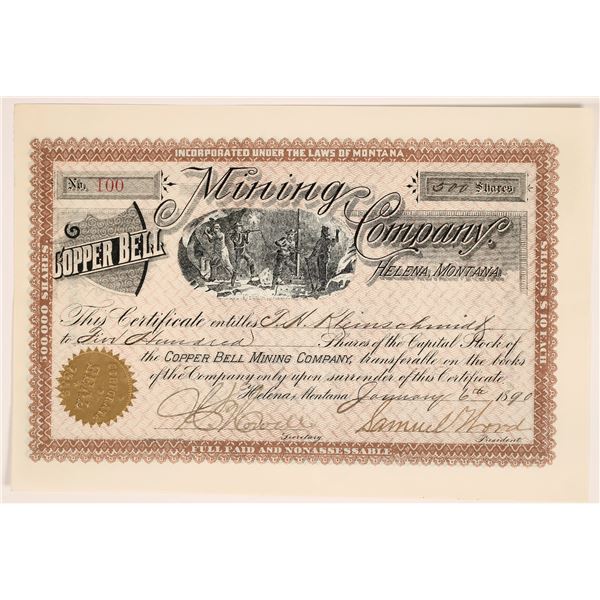 INCORPORATED UNDER THE LAWS OF MONTANA
No. 100
500 Shares
COPPER BELL
Mining
Company.
HELENA, MONTANA
300,000 SHARES
SHARES $10 EACH
This Certificate entitles T.H. Kleinschmidt
to Five Hundred Shares of the Capital Stock of
the COPPER BELL MINING COMPANY, transferable on the books
of the Company only upon surrender of this Certificate
Helena, Montana January 6th 1890
Samuel Word
Secretary
President
FULL PAID AND NONASSESSABLE